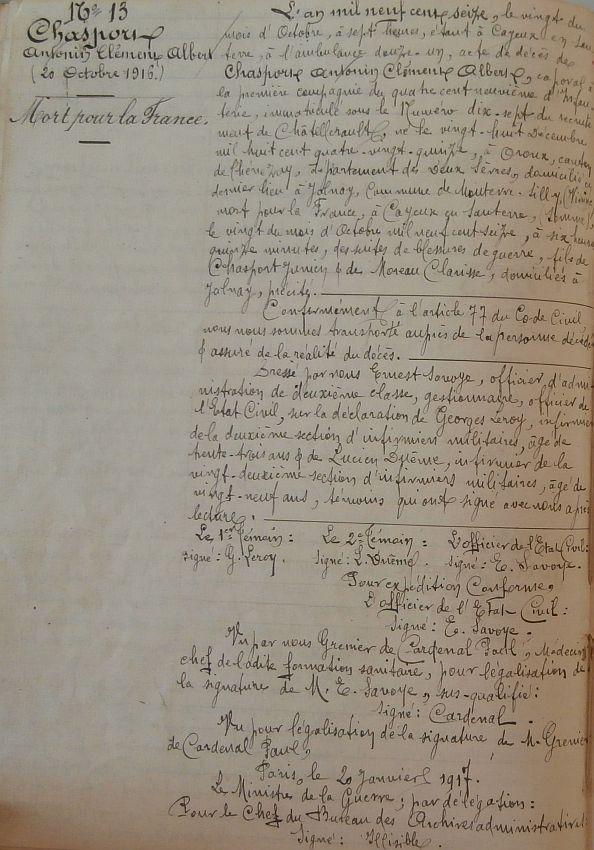 N° 13
Chasport
Antonin Clément Albert
(20 Octobre 1916.)
Mort pour la France.
L'an mil neuf cent seize, le vingt du
mois d'Octobre, à sept heures, étant à Cayeux en San
terre, à l'ambulance douze-un, acte de décès de
Chasport Antonin Clément Albert, caporal à
la première compagnie du quatre cent neuvième d'Infan
terie, immatriculé sous le Numéro dix-sept du recrute
ment de Châtellerault, né le vingt-huit décembre
mil huit cent quatre-vingt-quinze, à Oroux, canton
de Thénezay, département des Deux Sèvres, domicilié en
dernier lieu à Jalnay, Commune de Monterre-Silly (Vienne
mort pour la France, à Cayeux en Santerre, (Somme),
le vingt du mois d'Octobre mil neuf cent seize, à six heures
quinze minutes, des suites de blessures de guerre, fils de
Chasport Junien & de Moreau Clarisse, domiciliés à
Jalnay, précité.
Conformément à l'article 77 du Code Civil
nous nous sommes transporté auprès de la personne décédée
& assuré de la réalité du décès.
Dressé par nous Ernest Savoye, officier d'admi
nistration de deuxième classe, gestionnaire, officier de
l'Etat Civil, sur la déclaration de Georges Leroy, infirmier
de la deuxième section d'infirmiers militaires, âgé de
trente-trois ans & de Lucien Duême, infirmier de la
vingt-deuxième section d'infirmiers militaires, âgé de
vingt-neuf ans, témoins qui ont signé avec nous après
lecture.
Le 1er Témoin : Le 2e Témoin : L'officier de l'Etat Civil :
signé : G. Leroy. signé : L. Duême. signé : E. Savoye.
Pour expédition Conforme,
L'officier de l'Etat Civil :
signé : E. Savoye.
Vu par nous Grenier de Cardenal Paul, Médecin
chef de ladite formation sanitaire, pour légalisation de
la signature de M. E. Savoye, sus-qualifié :
signé : Cardenal.
Vu pour légalisation de la signature de M. Grenier
de Cardenal Paul,
Paris, le 20 Janvier 1917.
Le Ministre de la Guerre ; par délégation :
Pour le Chef du Bureau des Archives administratives :
Signé : Illisible.